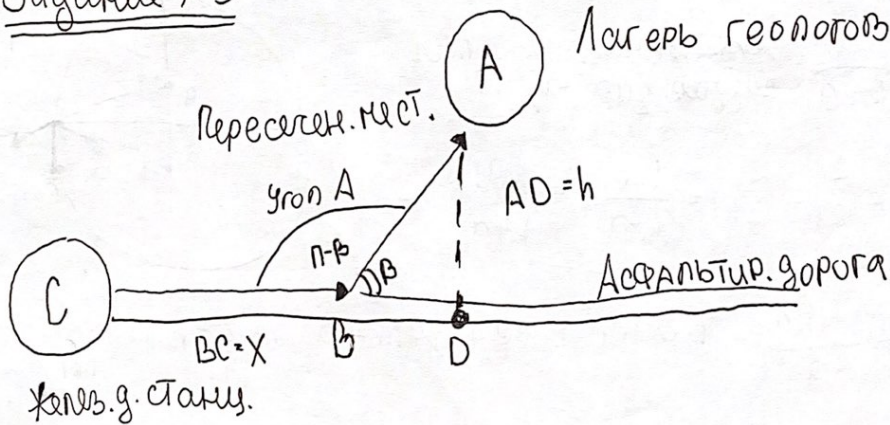 Задание
Лагерь геологов
А
Пересечен. мест.
Угол А
AD = h
П-β
β
Асфальтир. дорога
С
BC = X
В
D
Желез. д. станц.